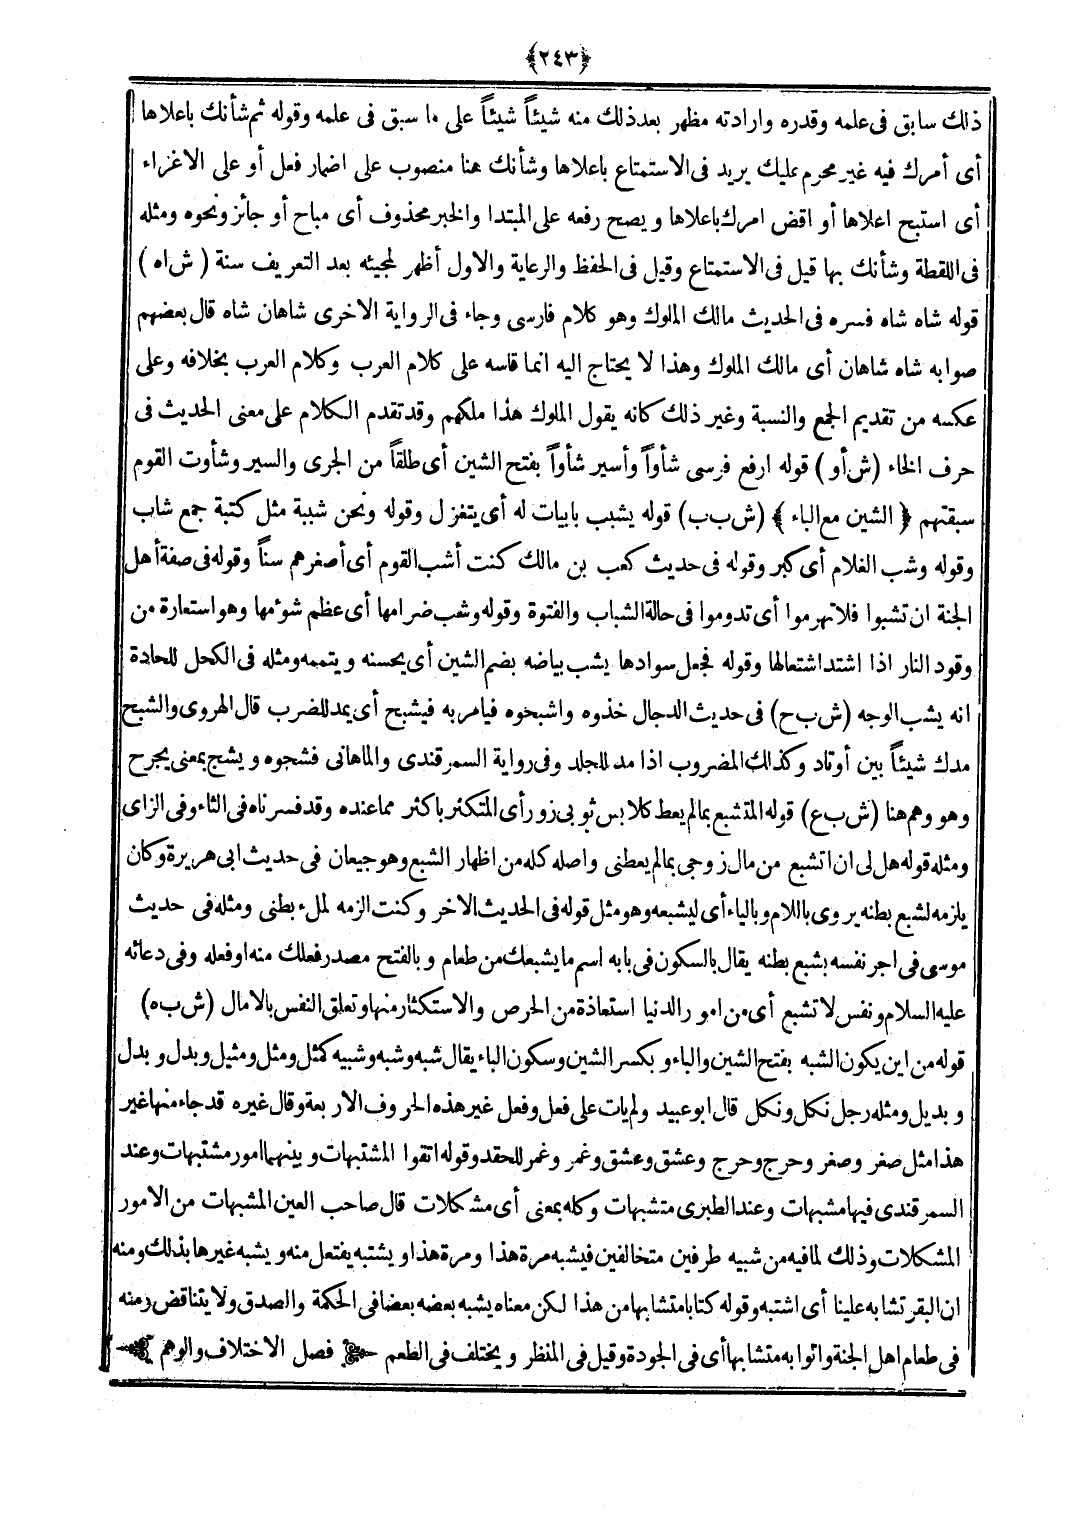 ﴿٢٤٣﴾
ذلك سابق فى علمه وقدره وارادته مظهر بعد ذلك منه شيئاً شيئاً على ما سبق فى علمه وقوله ثم شأنك باعلاها
أى أمرك فيه غير محرم عليك يريد فى الاستمتاع باعلاها وشأنك هنا منصوب على اضمار فعل أو على الاغراء
أى استبح اعلاها أو اقض امرك باعلاها و يصح رفعه على المبتدا والخبر محذوف أى مباح أو جائز ونحوه ومثله
فى اللقطة وشأنك بها قيل فى الاستمتاع وقيل فى الحفظ والرعاية والاول أظهر لمجيئه بعد التعريف سنة ( ش اه )
قوله شاه شاه فسره فى الحديث مالك الملوك وهو كلام فارسى وجاء فى الرواية الاخرى شاهان شاه قال بعضهم
صوابه شاه شاهان أى مالك الملوك وهذا لا يحتاج اليه انما قاسه على كلام العرب وكلام العرب بخلافه وعلى
عكسه من تقديم الجمع والنسبة وغير ذلك كانه يقول الملوك هذا ملكهم وقد تقدم الكلام على معنى الحديث فى
حرف الخاء ( ش أو ) قوله ارفع فرسى شأواً وأسير شأواً بفتح الشين أى طلقاً من الجرى والسير وشأوت القوم
سبقتهم ﴿ الشين مع الباء ﴾ ( ش ب ب ) قوله يشبب بابيات له أى يتغزل وقوله ونحن شببة مثل كتبة جمع شاب
وقوله وشب الغلام أى كبر وقوله فى حديث كعب بن مالك كنت أشب القوم أى أصغرهم سناً وقوله فى صفة أهل
الجنة ان تشبوا فلا تهرموا أى تدوموا فى حالة الشباب والفتوة وقوله وشب ضرامها أى عظم شوءمها وهو استعارة من
وقود النار اذا اشتد اشتعالها وقوله فجعل سوادها يشب بياضه بضم الشين أى يحسنه و يتممه ومثله فى الكحل للحادة
انه يشب الوجه ( ش ب ح ) فى حديث الدجال خذوه واشبحوه فيامر به فيشبح أى يمد للضرب قال الهروى والشبح
مدك شيئاً بين أوتاد وكذلك المضروب اذا مد للجلد وفى رواية السمرقندى والماهانى فشجوه و يشج بمعنى يجرح
وهو وهم هنا ( ش ب ع ) قوله المتشبع بمالم يعط كلابس ثوبى زور أى المتكثر باكثر مما عنده وقد فسرناه فى الثاء وفى الزاى
ومثله قوله هل لى ان اتشبع من مال زوجى بمالم يعطنى واصله كله من اظهار الشبع وهو جيعان فى حديث ابى هريرة وكان
يلزمه لشبع بطنه يروى باللام و بالباء أى ليشبعه وهو مثل قوله فى الحديث الاخر وكنت الزمه لملء بطنى ومثله فى حديث
موسى فى اجر نفسه بشبع بطنه يقال بالسكون فى بابه اسم ما يشبعك من طعام و بالفتح مصدر فعلك منه اوفعله وفى دعائه
عليه السلام ونفس لا تشبع أى من امور الدنيا استعاذة من الحرص والاستكثار منها وتعلق النفس بالامال ( ش ب ه )
قوله من اين يكون الشبه بفتح الشين والباء و بكسر الشين وسكون الباء يقال شبه وشبه وشبيه كمثل ومثل ومثيل وبدل و بدل
و بديل ومثله رجل نكل ونكل قال ابو عبيد ولم يات على فعل وفعل غير هذه الحروف الاربعة وقال غيره قد جاء منها غير
هذا مثل صغر وصغر وحرج وحرج وعشق وعشق وغمر وغمر للحقد وقوله اتقوا المشتبهات و بينهما امور مشتبهات وعند
السمرقندى فيها مشبهات وعند الطبرى متشبهات وكله بمعنى أى مشكلات قال صاحب العين المشبهات من الامور
المشكلات وذلك لما فيه من شبيه طرفين متخالفين فيشبه مرة هذا ومرة هذا و يشتبه يفتعل منه و يشبه غيرها بذلك ومنه
ان البقر تشابه علينا أى اشتبه وقوله كتابا متشابها من هذا لكن معناه يشبه بعضه بعضا فى الحكمة والصدق ولا يتناقض ومنه
فى طعام اهل الجنة واتوا به متشابها أى فى الجودة وقيل فى المنظر و يختلف فى الطعم ﴿ فصل الاختلاف والوهم ﴾